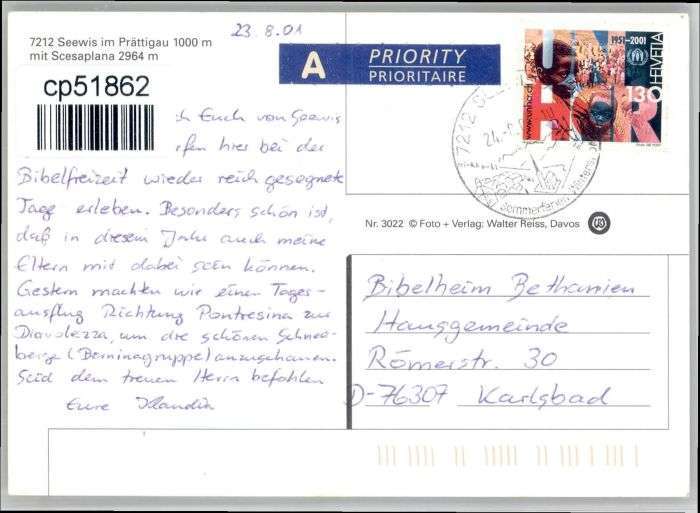 23.8.01
7212 Seewis im Prättigau 1000 m
mit Scesaplana 2964 m
cp51862
A PRIORITY
PRIORITAIRE
1951-2001
HELVETIA
130
www.unhcr.ch
7212 SEEWIS
24.
Sommerferien Wintersport
ch Euch von Seewis
rfen hier bei der
Bibelfreizeit wieder reich gesegnete
Tage erleben. Besonders schön ist,
daß in diesem Jahr auch meine
Eltern mit dabei sein können.
Gestern machten wir einen Tages-
ausflug Richtung Pontresina zur
Diavolezza, um die schönen Schnee-
berge (Berninagruppe) anzuschauen.
Seid dem treuen Herrn befohlen
Eure
Nr. 3022 © Foto + Verlag: Walter Reiss, Davos
Bibelheim Bethanien
Hausgemeinde
Römerstr. 30
D-76307 Karlsbad